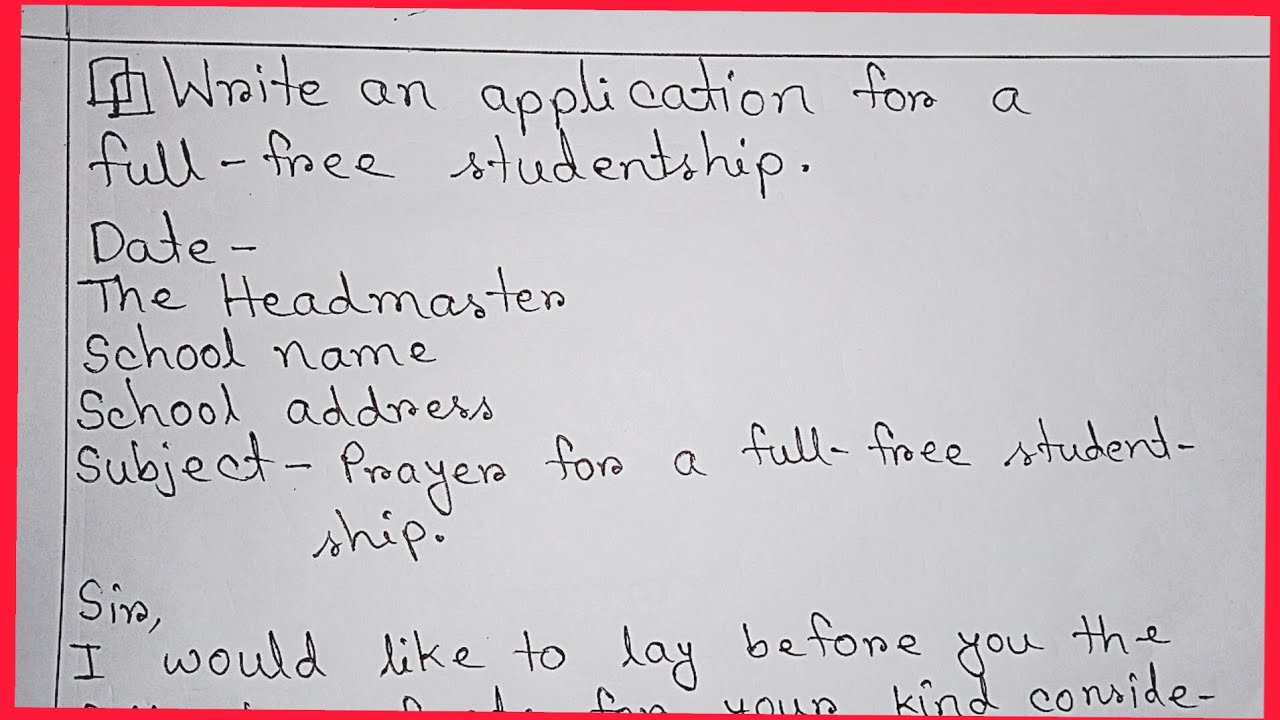 Write an application for a
full-free studentship.
Date -
The Headmaster
School name
School address
Subject - Prayer for a full-free student-
ship.
Sir,
I would like to lay before you the
for your kind conside-